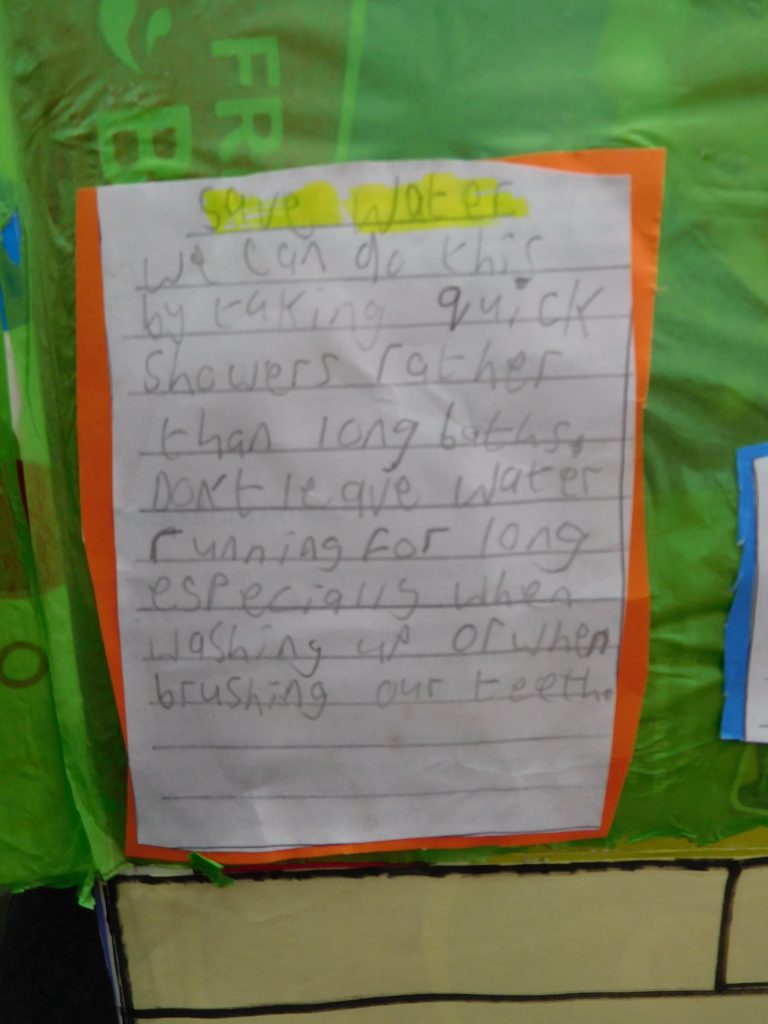 FR
Save Water
We can do this
by taking quick
Showers rather
than long baths.
DON't leave water
running For long
especially when
washing up or when
brushing our teeth.